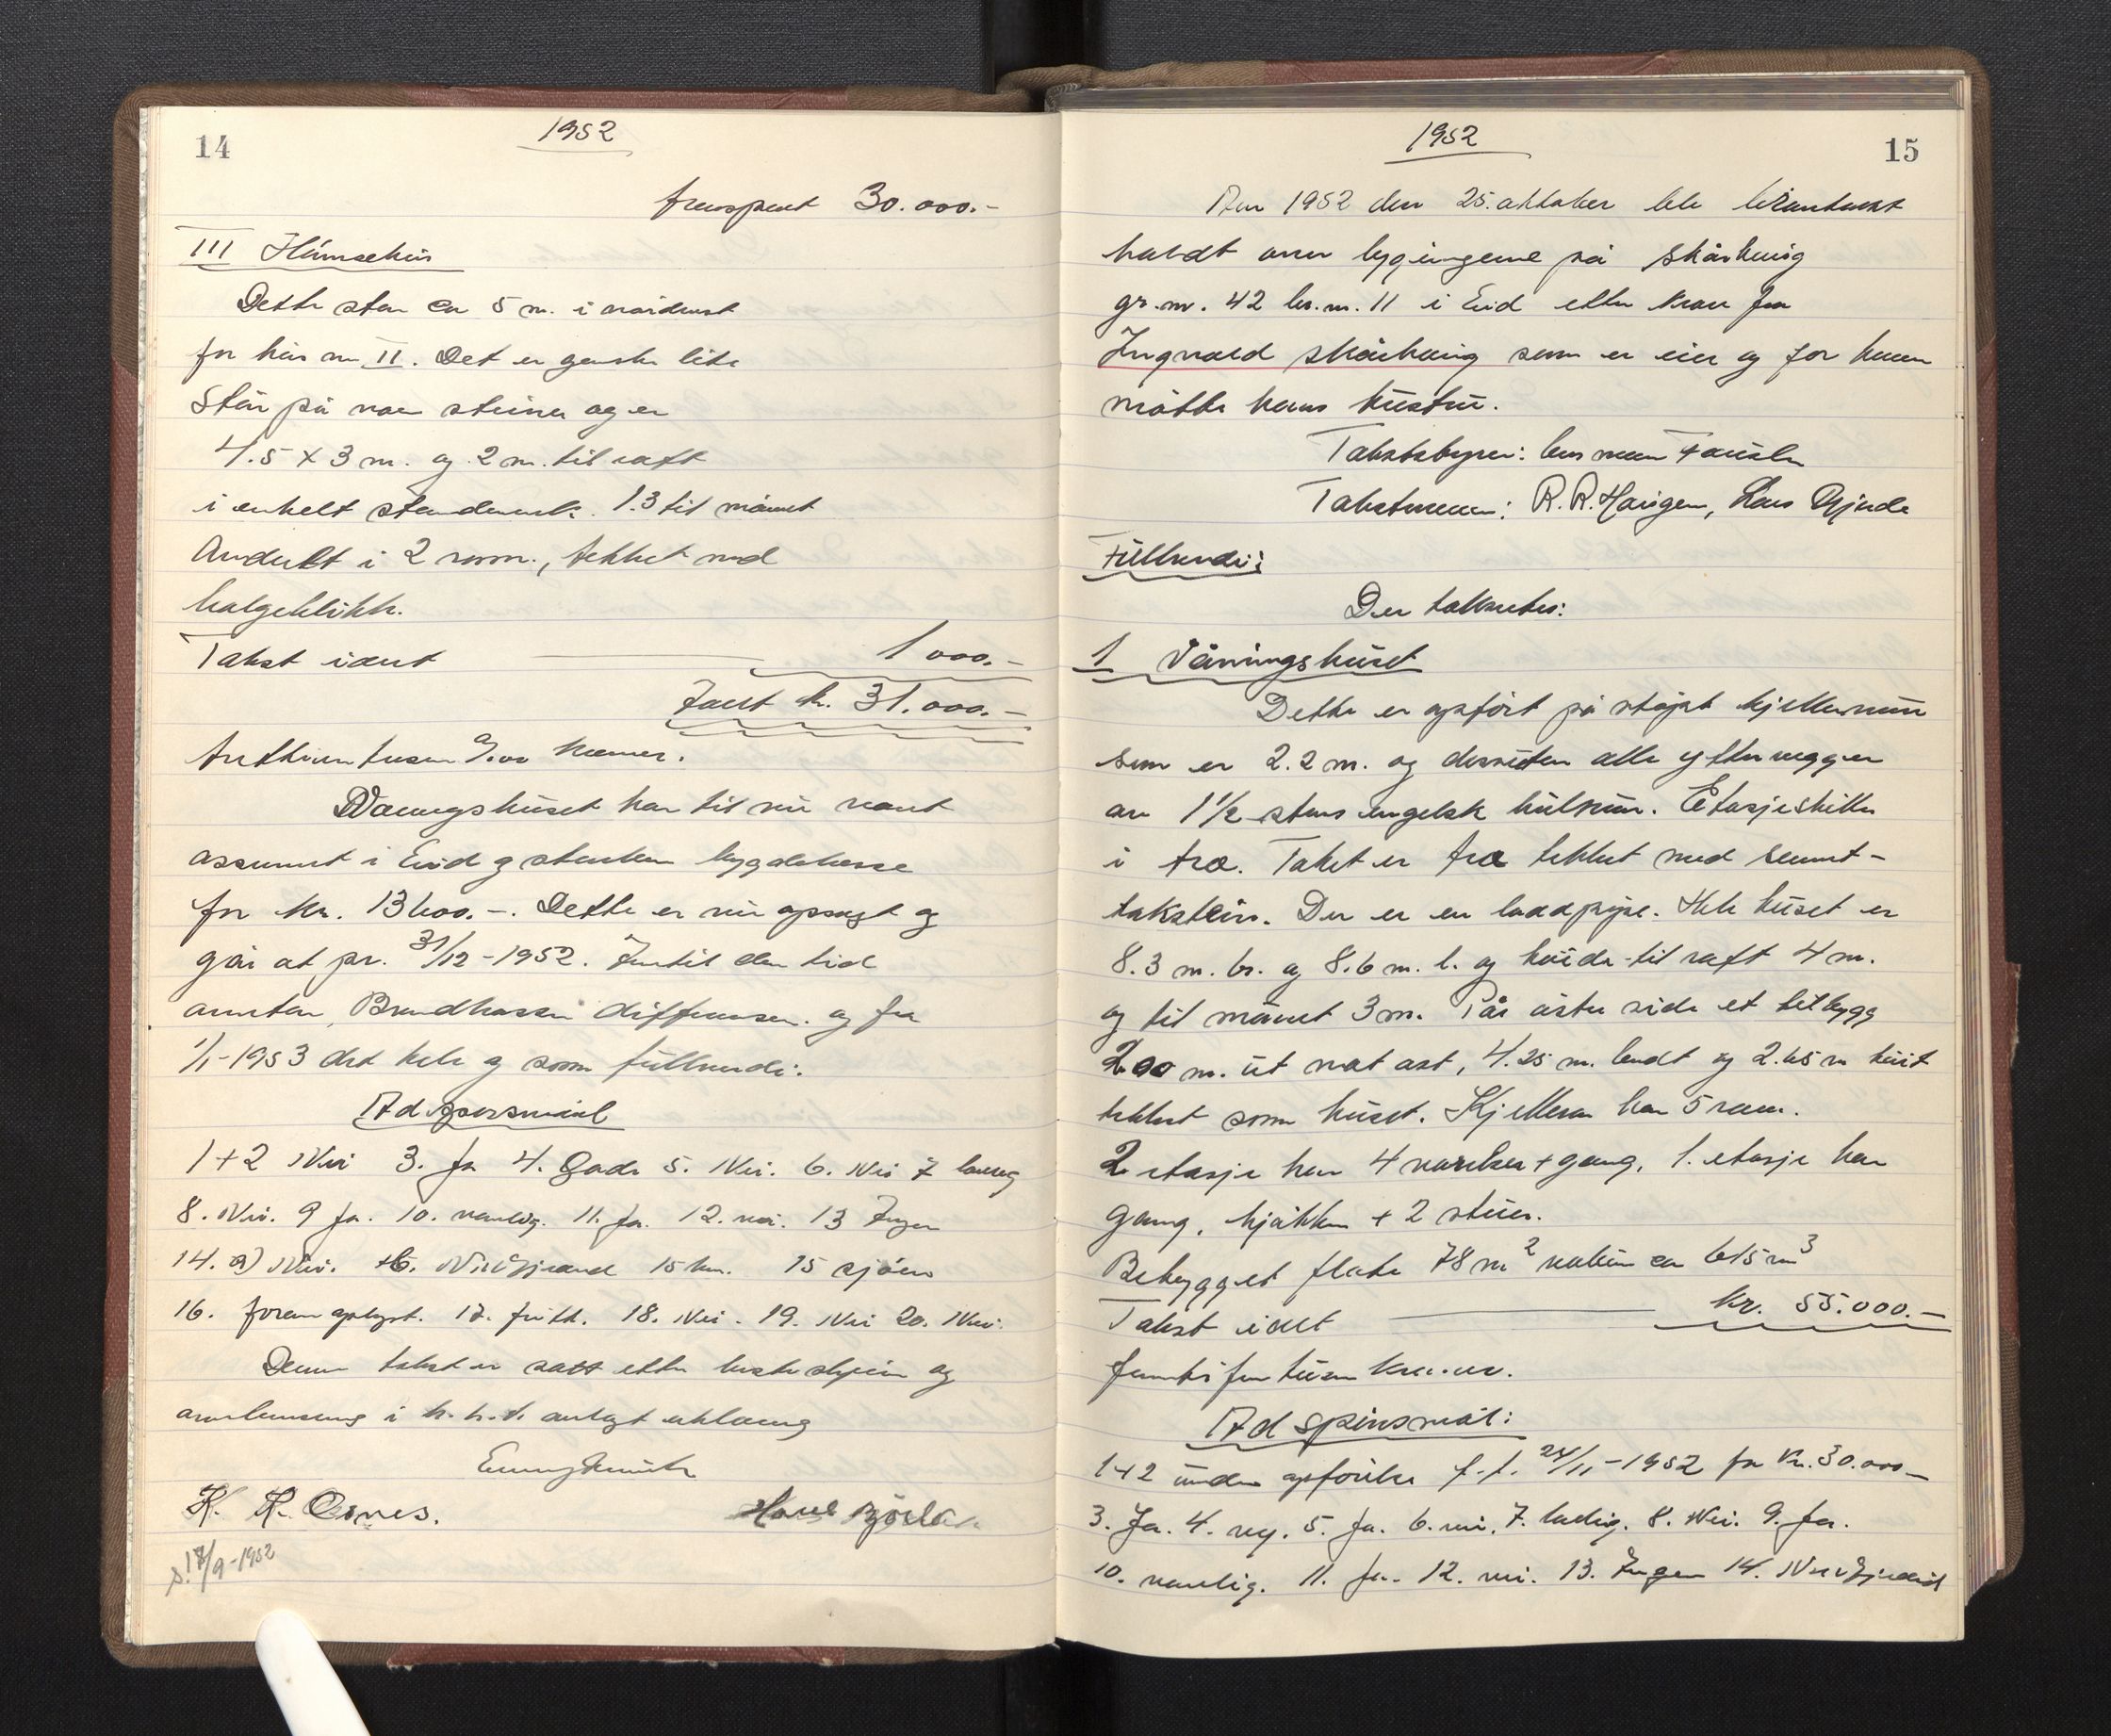 14
1952
transport 30.000.-
III Hønsehus
Dette står ca 5 m. i nordvest
for hus nr II. Det er ganske lite
Står på noen steiner og er
4.5 x 3 m. og 2 m. til raft
i enkelt standverk. 1.3 til mønet
Avdelt i 2 rom., tekket med
bølgeblikk.
Takst ident 1000.-
Ialt kr. 31.000.-
trettientusen 0/00 kroner.
Våningshuset har til nu vært
assurert i Eid og bygdekasse
for kr. 13600.-. Dette er nu opsagt og
går ut pr. 31/12-1952. Inntil den tid
Brandkassen differansen. og fra
1/1-1953 det hele og som fullverdi.
Ad spørsmål
1+2 Nei 3. Ja 4. Gode 5. Nei. 6. Nei 7
8. Nei. 9 Ja. 10. vanlig. 11. Ja. 12. nei. 13 Ingen
14. a) Nei. + b. 15 km. 15 sjøen
16. foran oplyst. 17. fritt. 18. Nei. 19. Nei 20. Nei.
Denne takst er satt etter beste skjønn og
i h. h. t. avlagt
K. K. Osnes.
17/9-1952
1952
15
Den 1952 den 25. oktober ble branntakst
holdt over bygningene på Skårhaug
gr.nr. 42 br.nr. 11 i Eid etter krav fra
Ingvald Skårhaug som er eier og for ham
møtte hans hustru.
Takstbestyrer: lensmann
Takstmenn: R. R. Haugen, Lars Gjerde
Fullverdi:
Der takseres:
1 Våningshuset
Dette er opført på støpt kjellermur
som er 2.2 m. og dessuten alle yttervegger
av 1 1/2 stens engelsk hulmur. Etasjeskille
i tre. Taket er tre tekket med sement-
takstein. Der er en loddpipe. Hele huset er
8.3 m. br. og 8.6 m. l. og høide til raft 4 m.
og til mønet 3 m. På østre side et tilbygg
2.00 m. ut mot øst, 4.25 m. bredt og 2.65 m høit
tekket som huset. Kjelleren har 5 rom.
2 etasje har 4 værelser + gang, 1. etasje har
gang, kjøkken + 2 stuer.
Bebygget flate 78 m2 volum ca 615 m3
Takst idet kr. 55.000.-
femtifem tusen kroner.
Ad spørsmål:
1+2 under opførelse f.t. 24/11-1952 for kr. 30.000-
3. Ja. 4. ny. 5. Ja. 6. nei. 7. ledig. 8. Nei. 9. Ja.
10. vanlig. 11. Ja. 12. nei. 13. Ingen 14.